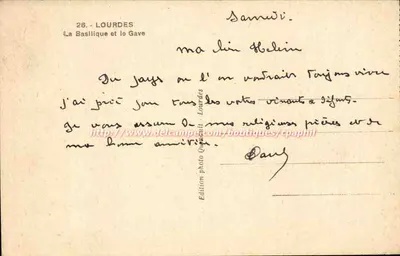 26. - LOURDES
La Basilique et le Gave
Samedi.
ma Hélein
Du pays où l'on voudrait toujours vivre
j'ai prié pour tous les votres vivants & défunts.
je vous assure de mes religieuses prières et de
http://www.delcampe.com/boutiques/rpaphil
ma bonne amitié.
Paul
Edition photo Lourdes